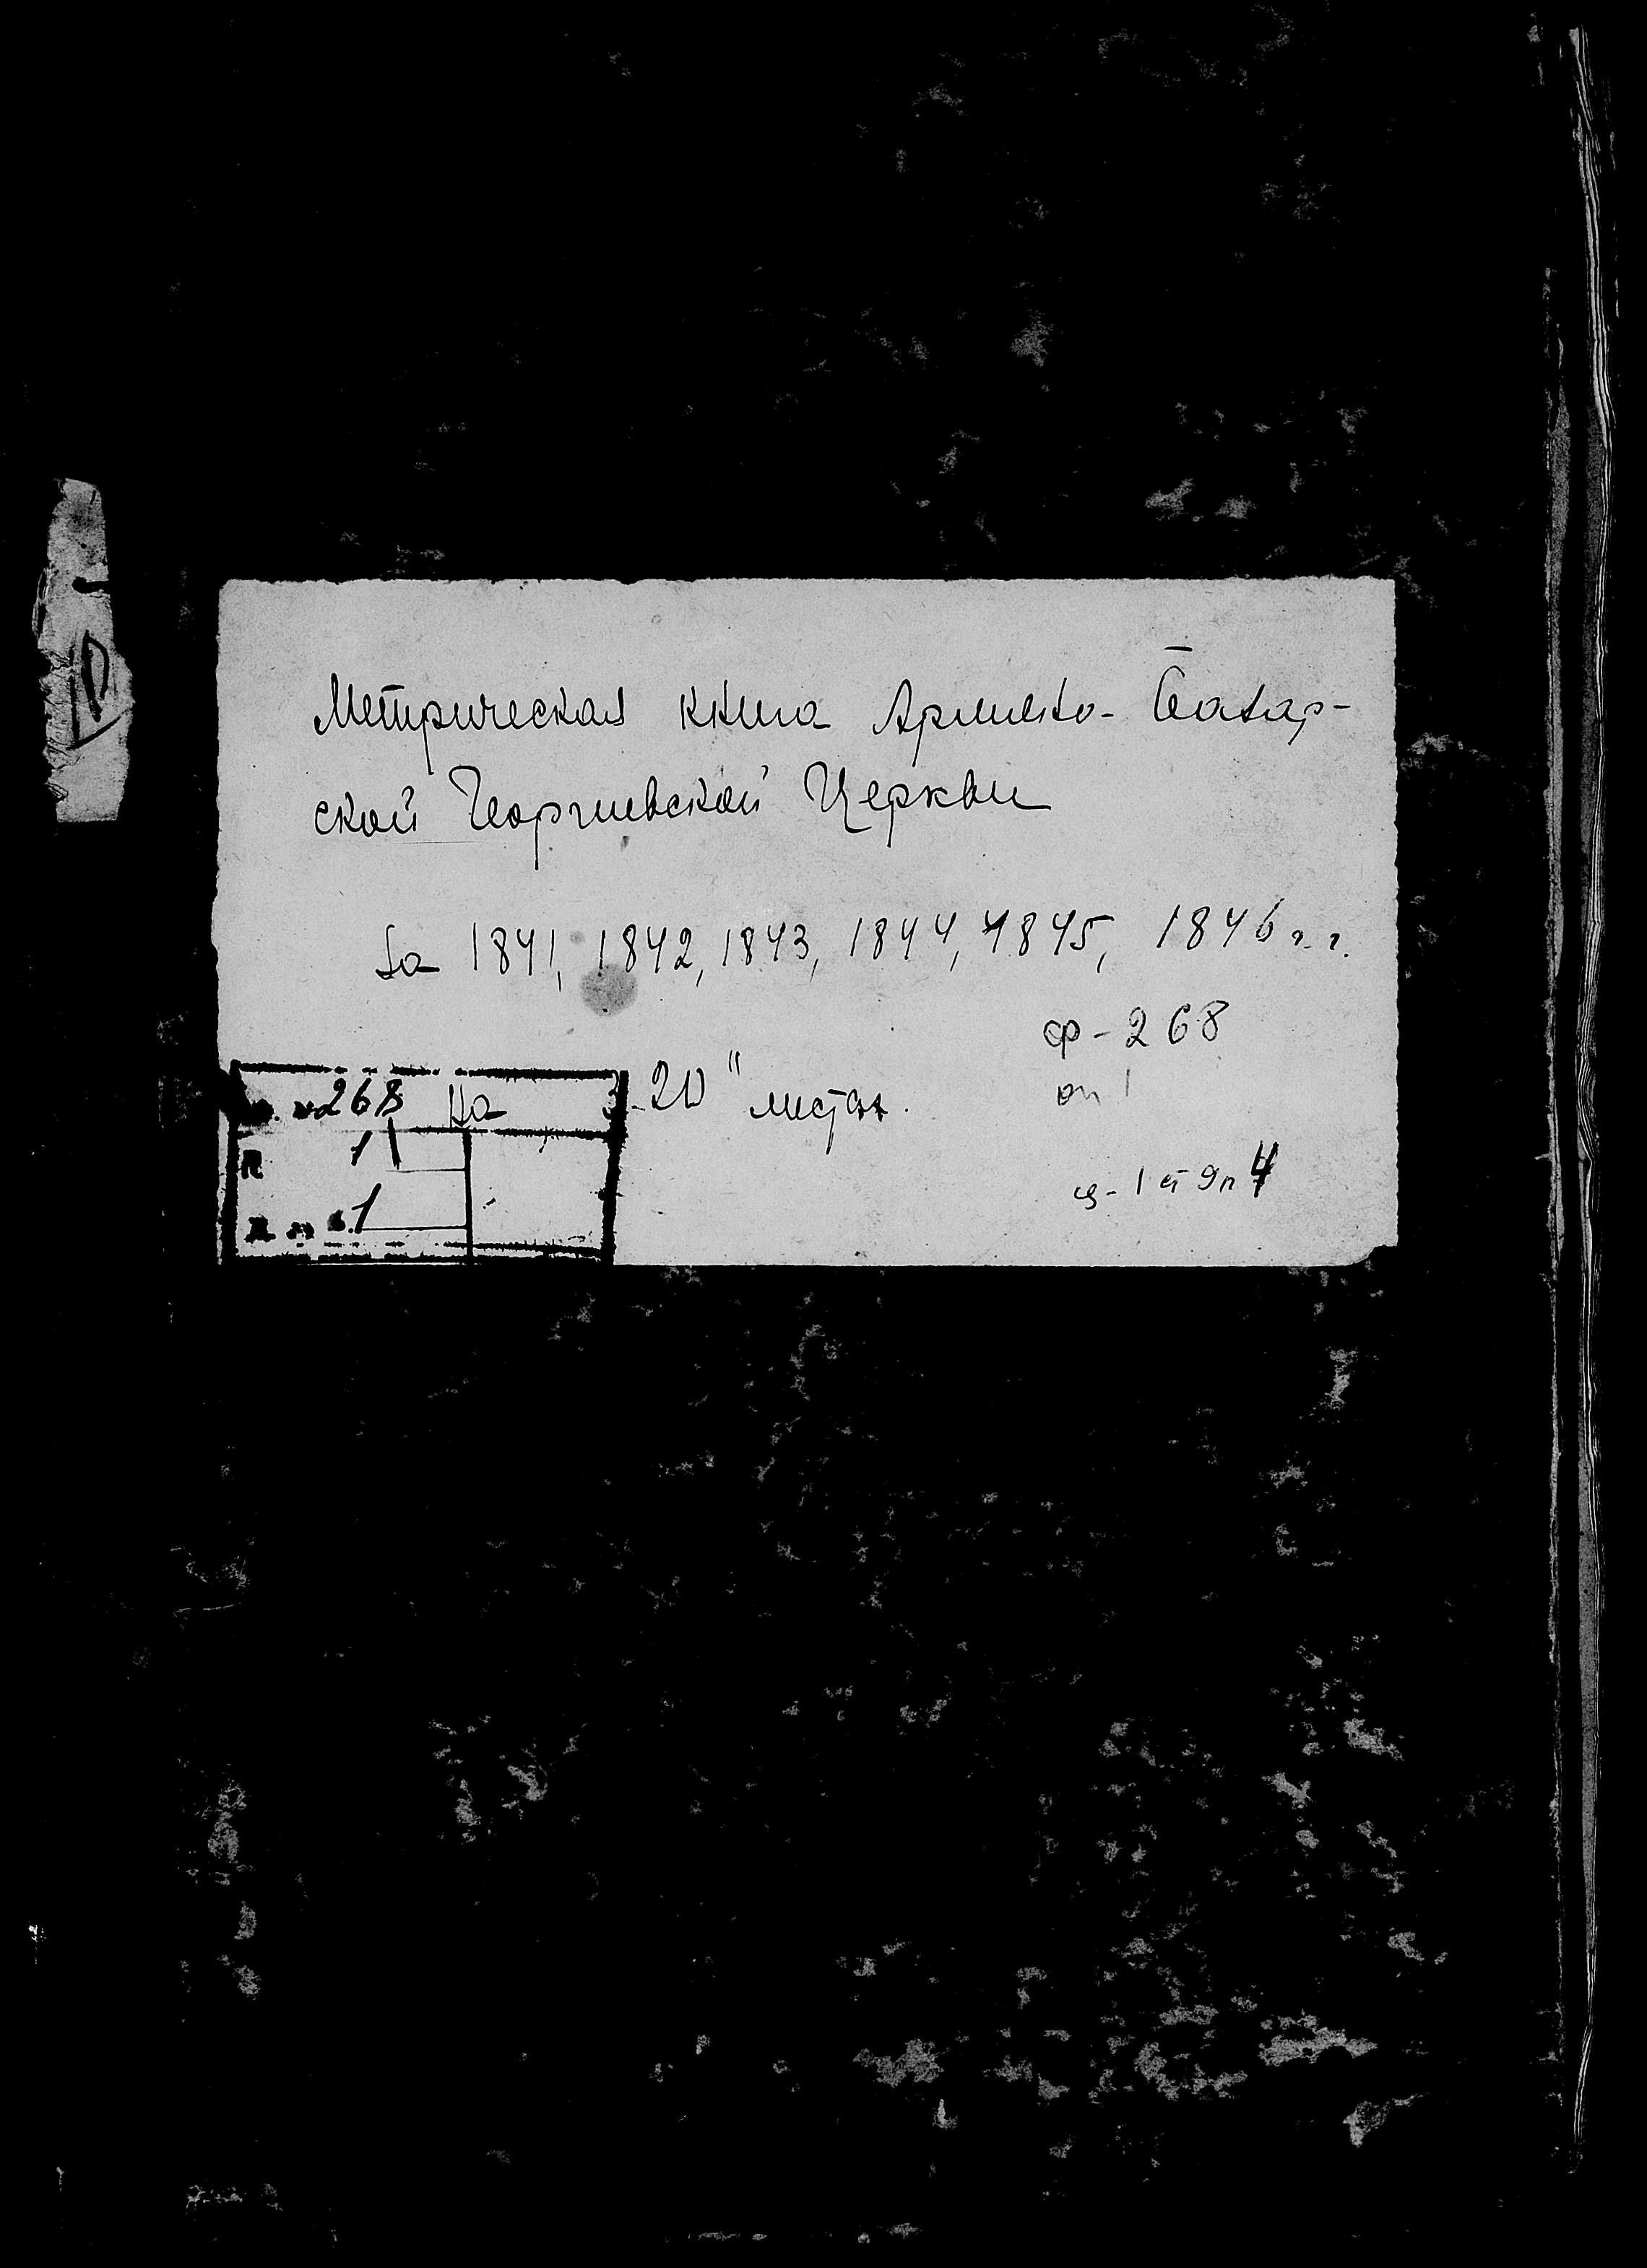 Метрическая книга Армяно-Базар-
ской Георгиевской Церкви
За 1841, 1842, 1843, 1844, 1845, 1846 г.г.
ф-268
268 На 20 " листах.
оп 1
1
1
4
10